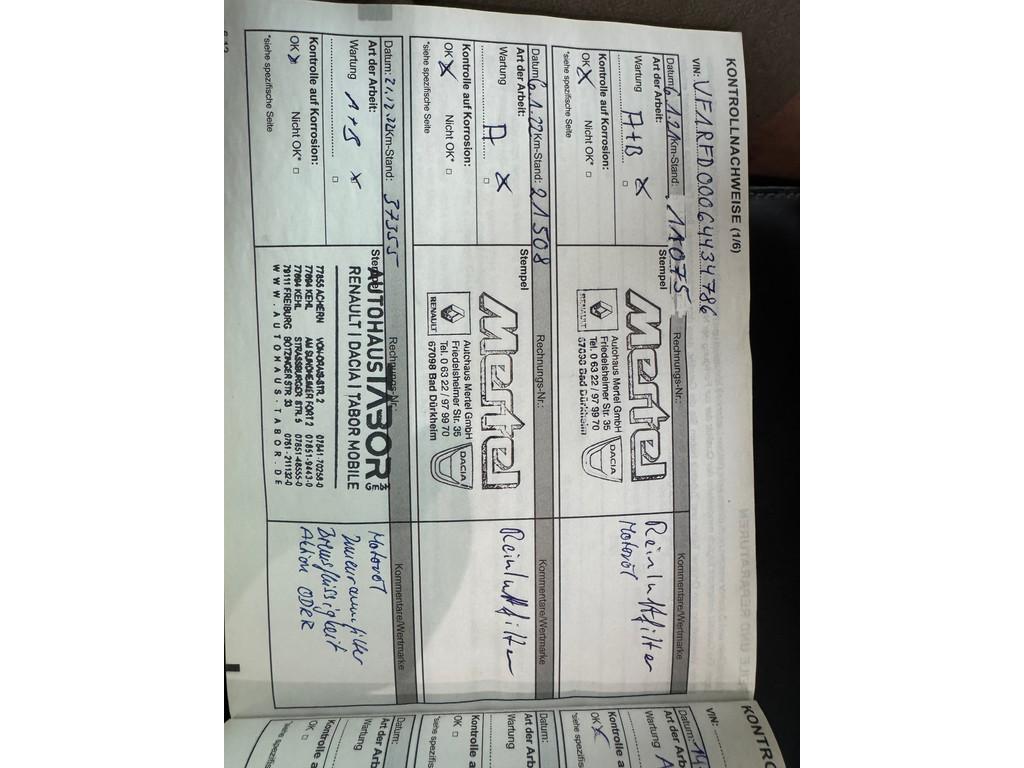 KONTROLLNACHWEISE (1/6)
VIN: VF1RFD00064434786
Datum: 6.1.21 Km-Stand: 11075
Rechnungs-Nr.:
Kommentare/Wertmarke
Art der Arbeit:
Stempel
Wartung A+B X
Reinluftfilter
Motoröl
Kontrolle auf Korrosion:
OK X Nicht OK* □
*siehe spezifische Seite
Mertel
Autohaus Mertel GmbH
Friedelsheimer Str. 35
Tel. 0 63 22 / 97 99 70
67098 Bad Dürkheim
RENAULT
DACIA
Datum: 6.1.22 Km-Stand: 21508
Rechnungs-Nr.:
Kommentare/Wertmarke
Art der Arbeit:
Stempel
Wartung A X
Reinluftfilter
Kontrolle auf Korrosion:
OK X Nicht OK* □
*siehe spezifische Seite
Mertel
Autohaus Mertel GmbH
Friedelsheimer Str. 35
Tel. 0 63 22 / 97 99 70
67098 Bad Dürkheim
RENAULT
DACIA
Datum: 21.12.22 Km-Stand: 37355
Rechnungs-Nr.:
Kommentare/Wertmarke
Art der Arbeit:
Stempel
Wartung A+B X
Kontrolle auf Korrosion:
OK X Nicht OK* □
*siehe spezifische Seite
AUTOHAUS TABOR
RENAULT | DACIA | TABOR MOBILE
77855 ACHERN VON-DRAIS-STR. 2 07841-70258-0
77694 KEHL AM SUNDHEIMER FORT 2 07851-9443-0
77694 KEHL STRASSBURGER STR. 5 07851-48555-0
79111 FREIBURG BÖTZINGER STR. 33 0761-211132-0
WWW.AUTOHAUS-TABOR.DE
Motoröl
Innenraumfilter
Bremsflüssigkeit
Aktion
KONTRO
VIN:
Datum: 14.
Art der Arb
Wartung A
Kontrolle a
OK X
*siehe spezifis
Datum:
Art der Arb
Wartung
Kontrolle a
OK □
*siehe spezifis
Datum:
Art der Arb
Wartung
Kontrolle a
OK □
*siehe spezifi